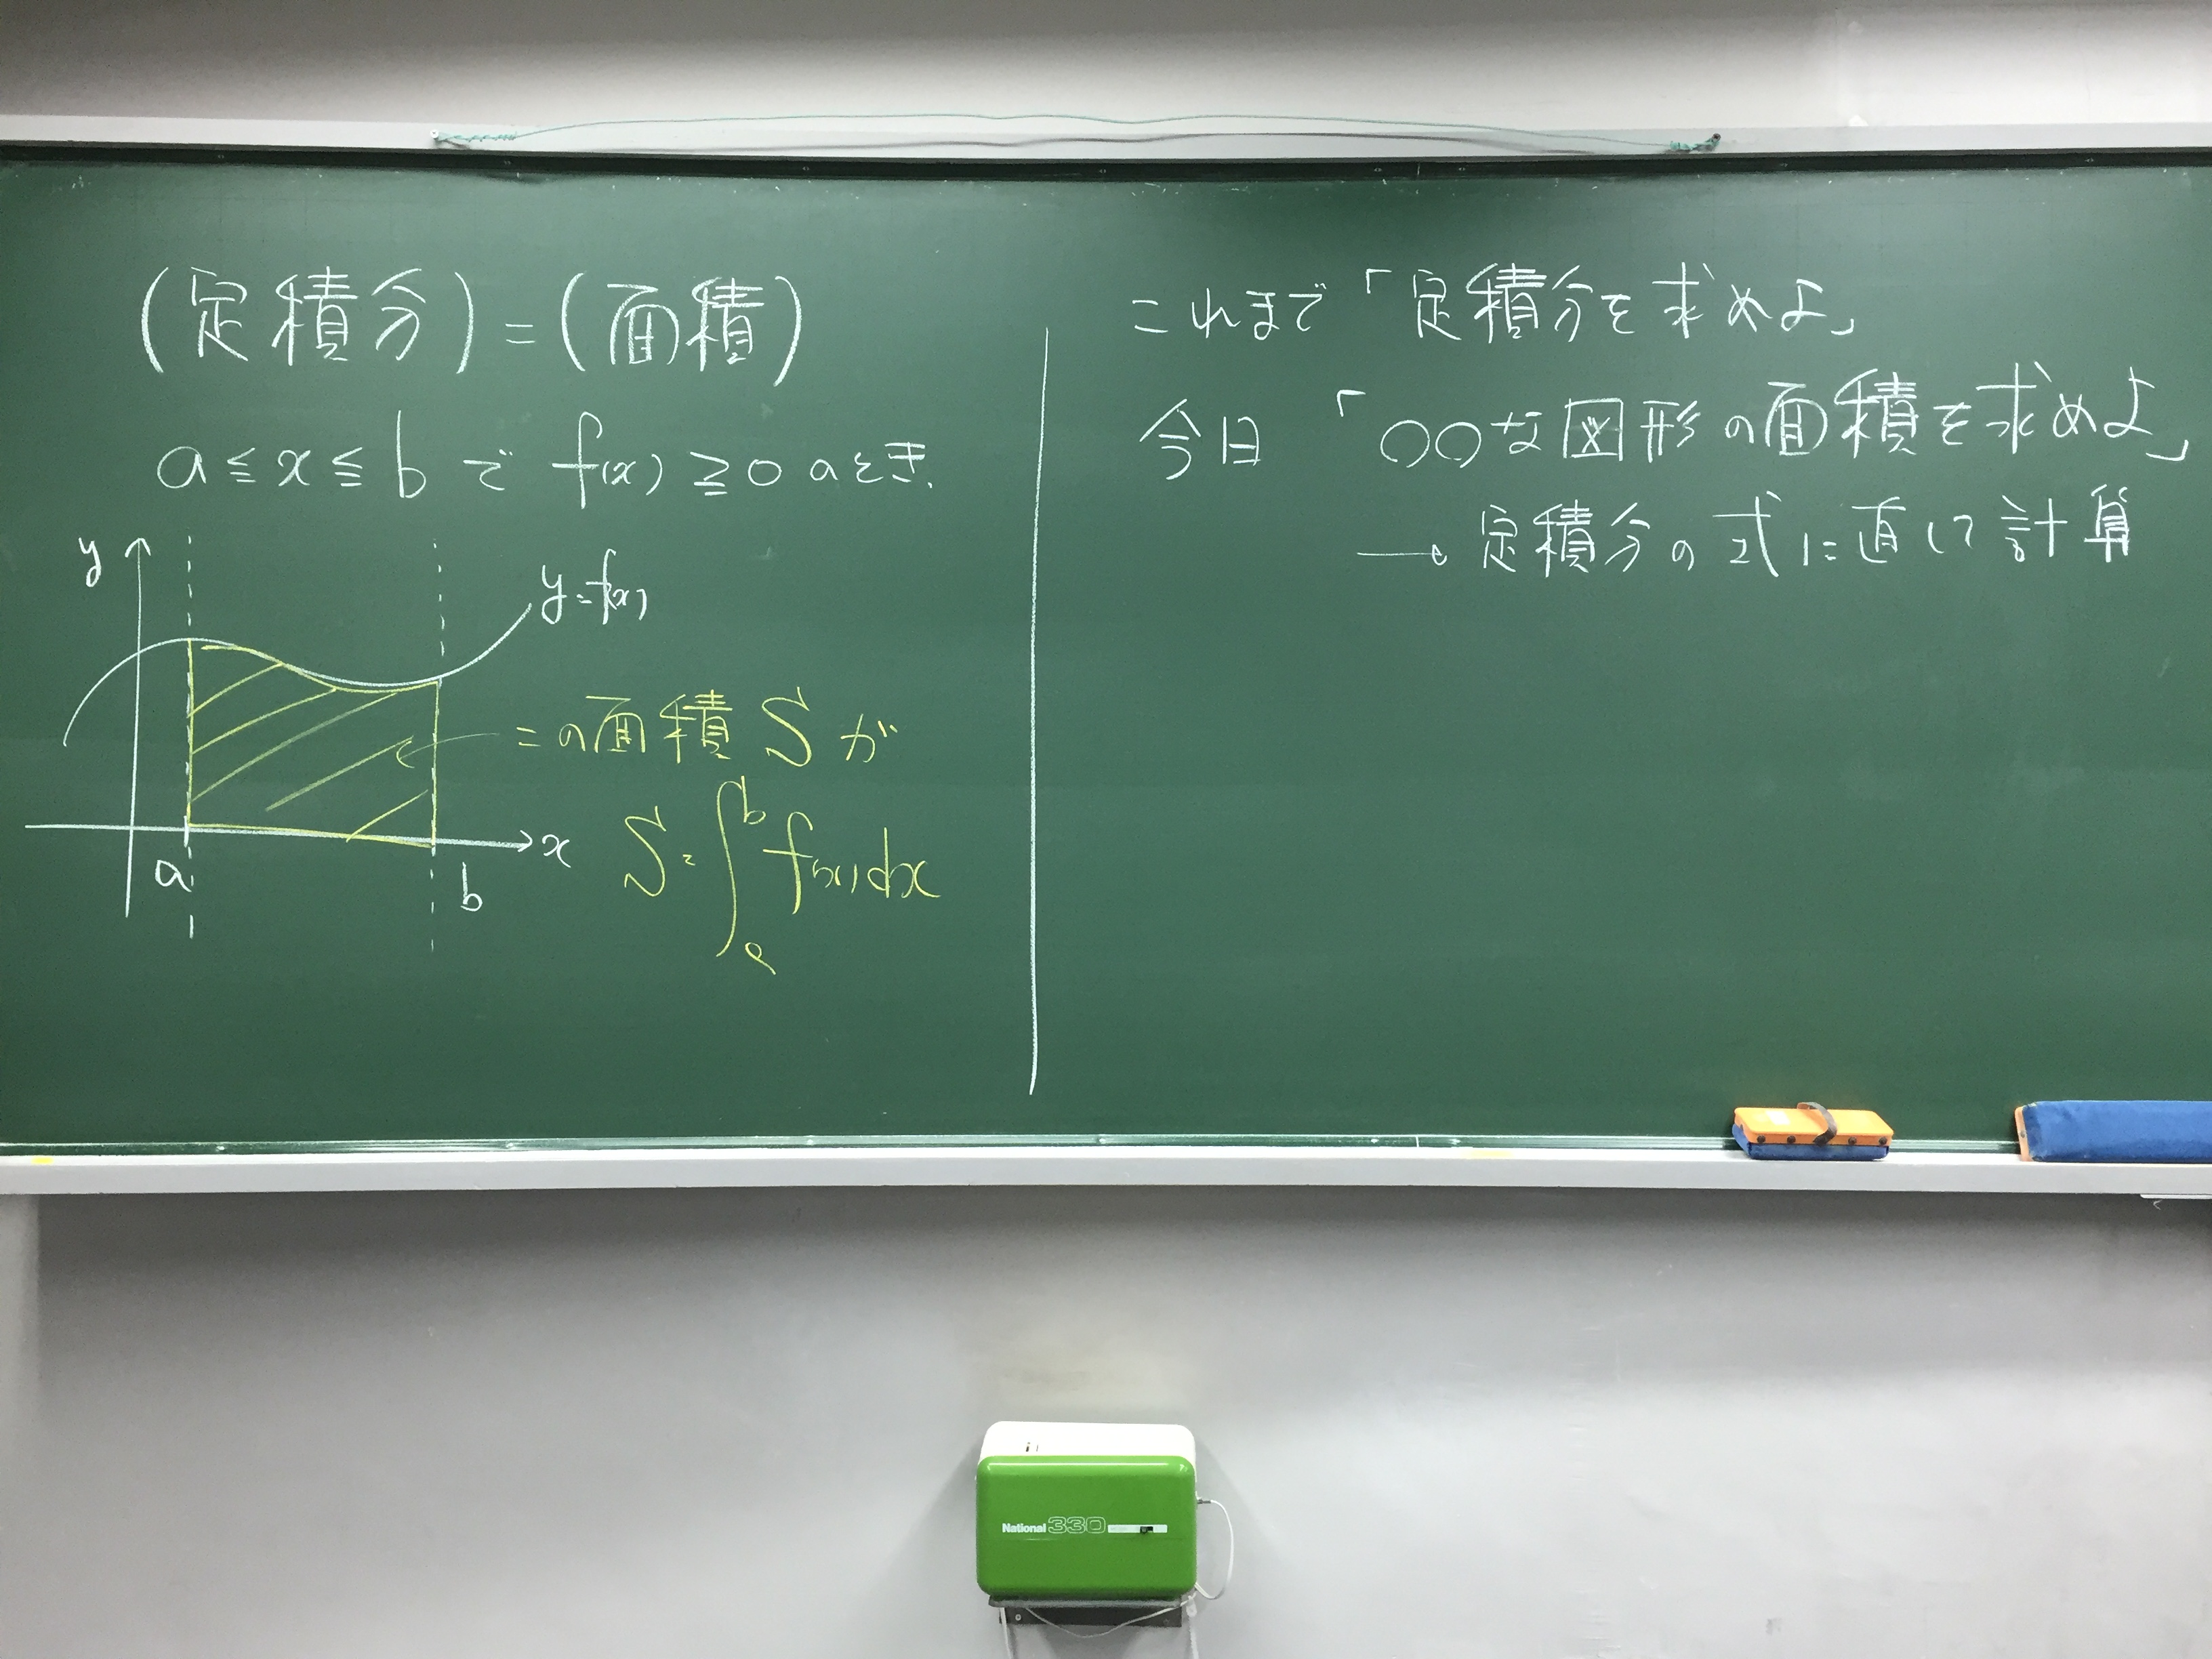 (定積分)=(面積)
a≦x≦bでf(x)≧0のとき.
y
y=f(x)
この面積Sが
x
a
b
S=∫_a^b f(x)dx
これまで「定積分を求めよ」
今日「○○な図形の面積を求めよ」
→定積分の式に直して計算
National 330